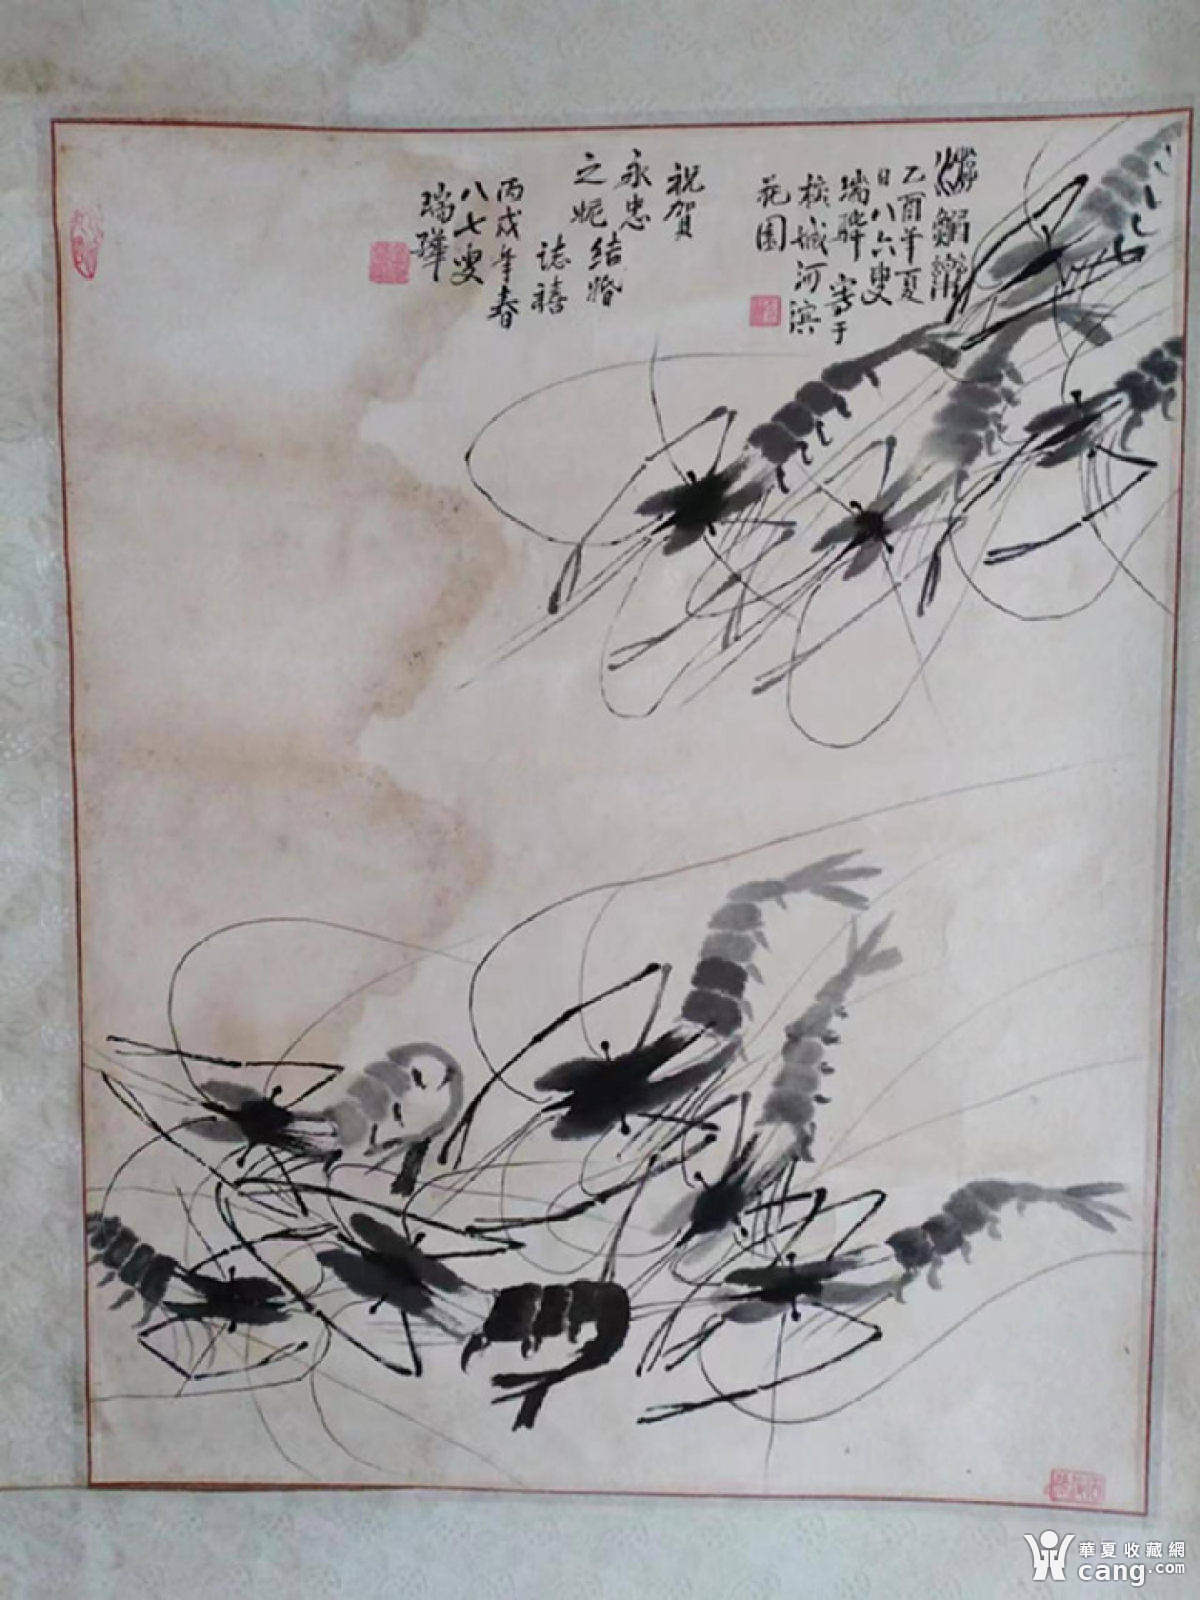 乙酉年夏
日八六叟
瑞驊 寫于
榕城河滨
花園
祝賀
永忠
之妮 结婚
誌禧
丙戌年春
八七叟
瑞驊
華夏收藏網
cang.com